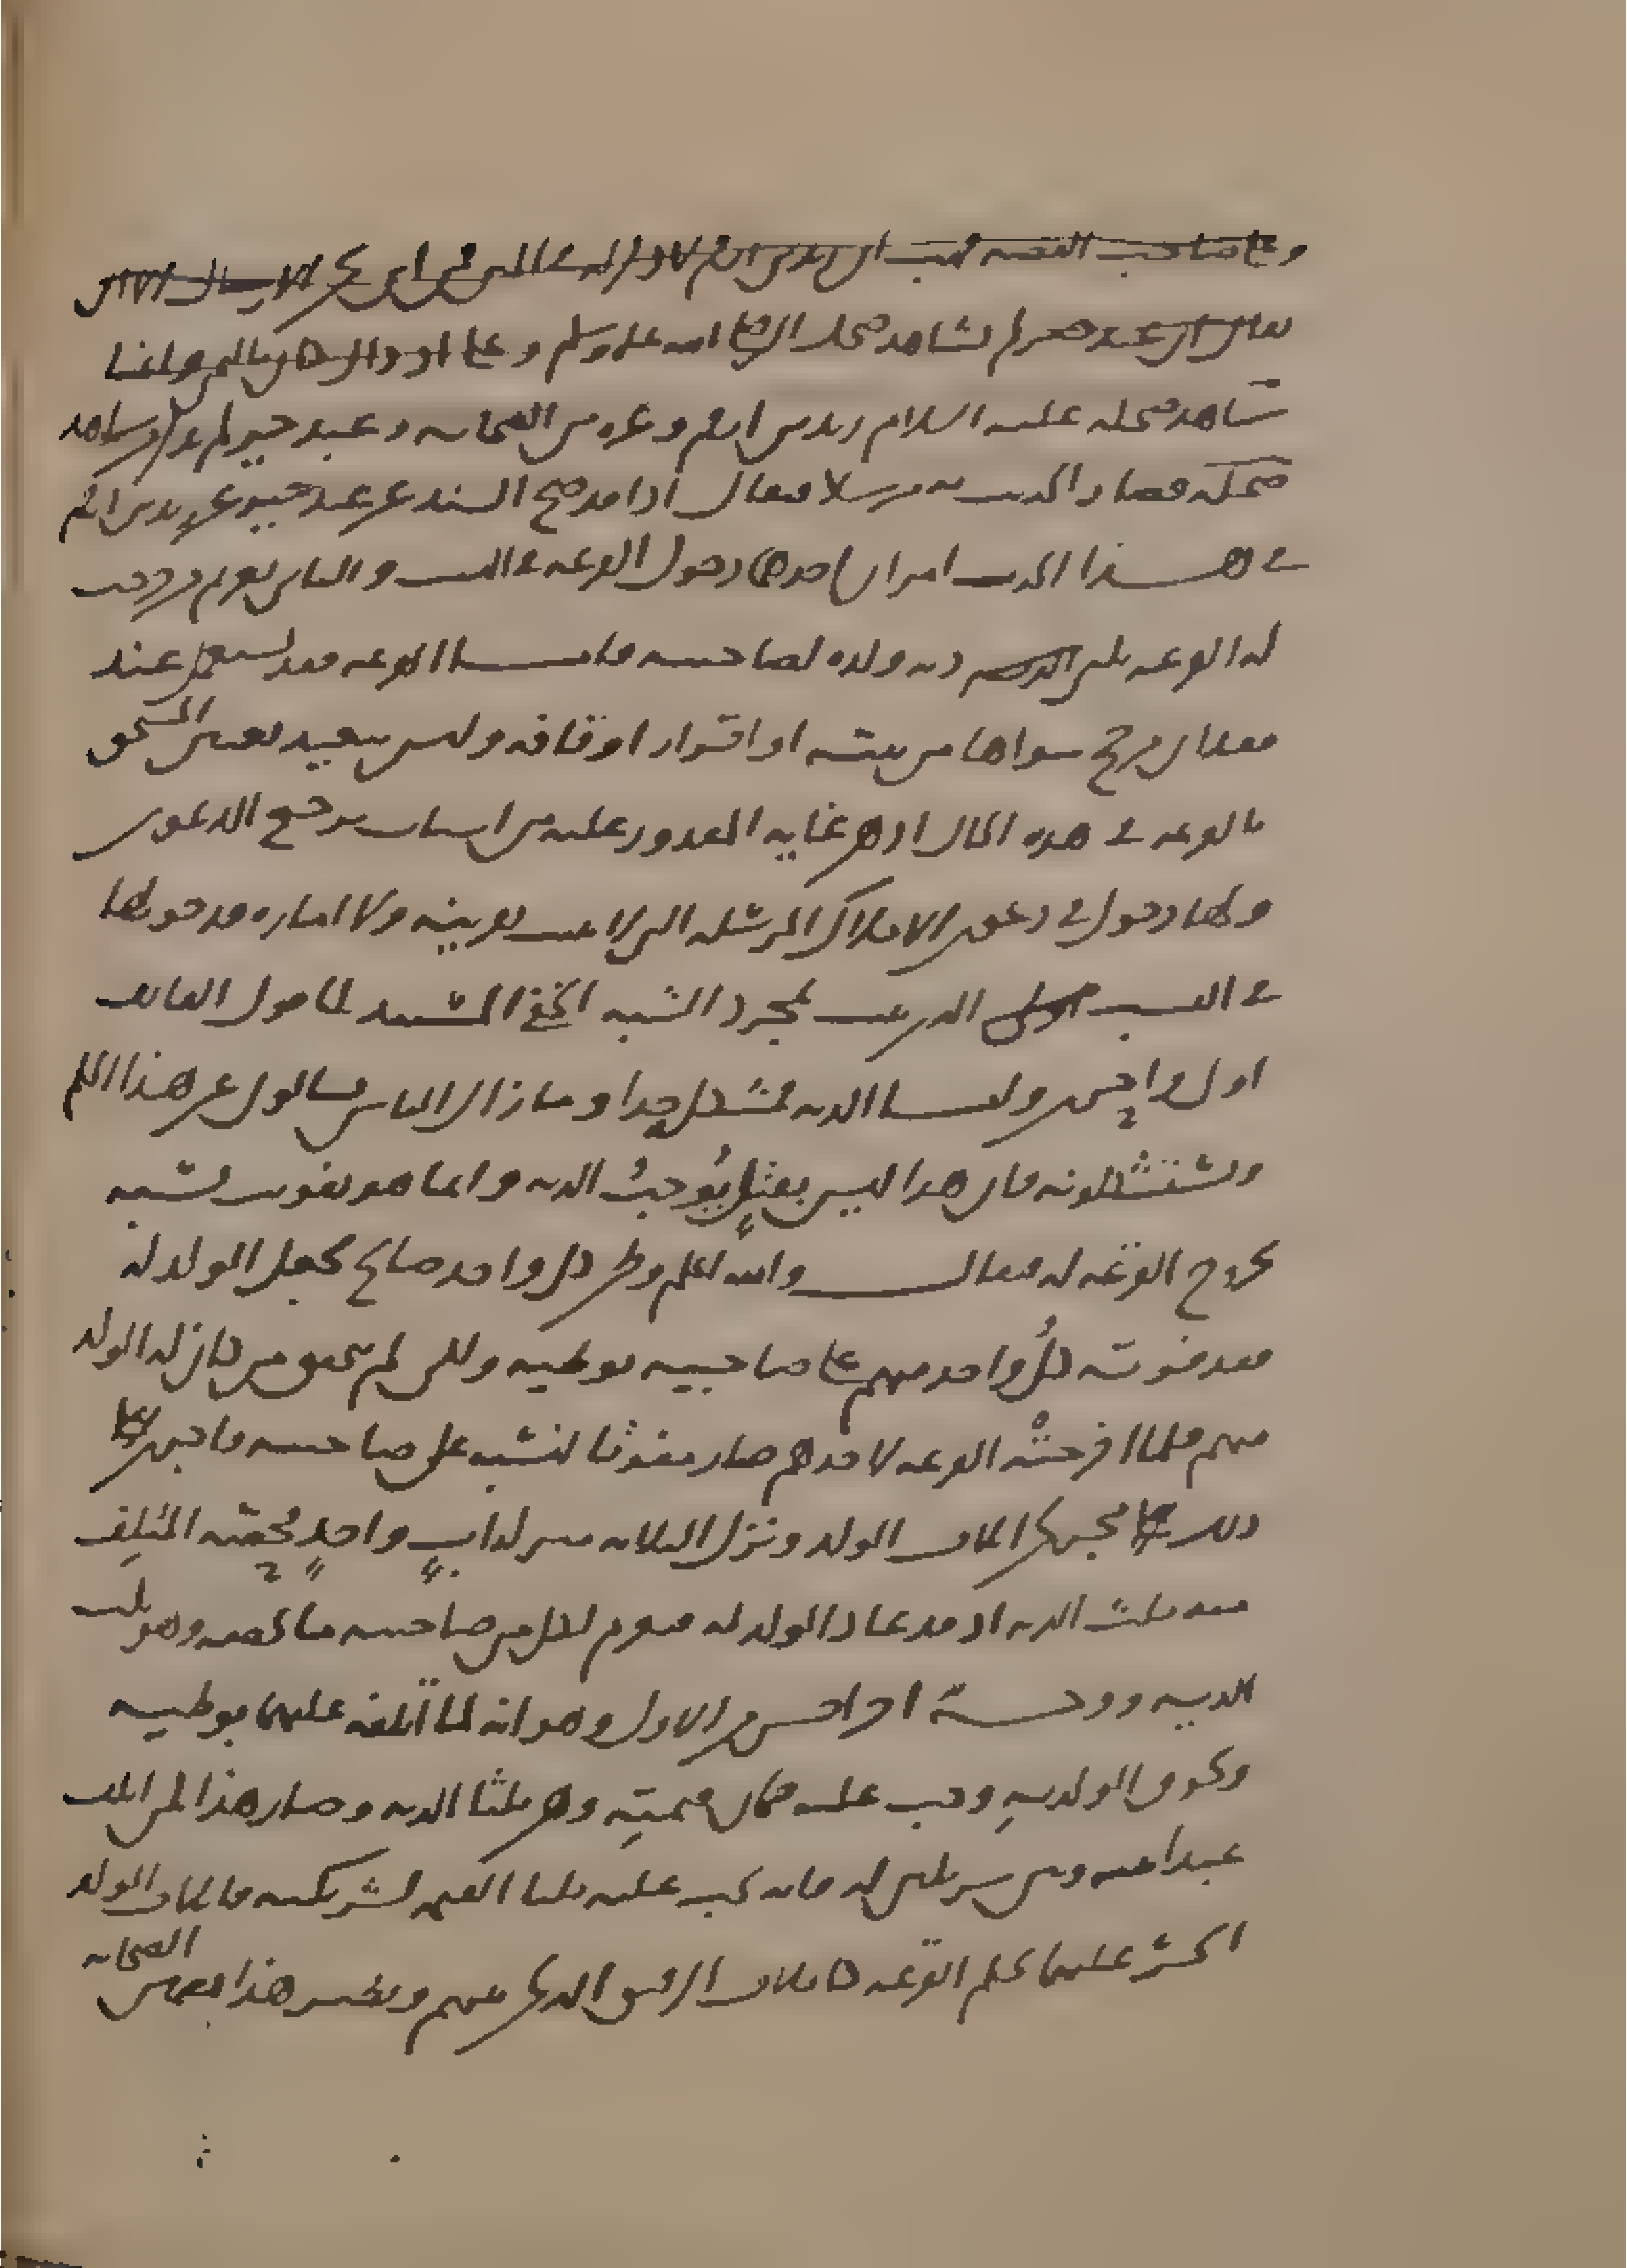 وعلى صاحب القصة
فان عبد خير لم يشاهد ضحك النبي صلى الله عليه وسلم وعلى اذ ذاك كان باليمن وانما
شاهد ضحكه عليه السلام زيد بن ارقم وغيره من الصحابة وعبد خير لم يذكر من شاهد
ضحكه فصار الحديث به مرسلا فيقال اذا قد صح السند عن عبد خير عن زيد بن ارقم
في هذا الحديث امران احدهما دخول القرعة في النسب والثاني تغريم من وجبت
له القرعة ثلثي دية ولده لصاحبيه فاما القرعة فقد تستعمل عند
فقدان مرجح سواها من بينة او اقرار او قافه وليس ببعيد تعيين المستحق
بالقرعة في هذه الحال اذ هي غاية المقدور عليه من اسباب ترجيح الدعوى
ولها دخول في دعوى الاملاك المرسلة التي لا تثبت بقرينة ولا امارة فدخولها
في النسب الذي يثبت بمجرد الشبه الخفي المستند الى قول القائف
اولى واحرى واما الدية فمشكل جدا وما زال الناس يسالون عن هذا الحكم
ويستشكلونه فان هذا ليس بقتل يوجب الدية وانما هو تفويت نسبه
بخروج القرعة له فيقال والله اعلم وطئ كل واحد صالح لجعل الولد له
فقد فوته كل واحد منهم على صاحبيه بوطيه ولكن لم يتحقق من كان له الولد
منهم فلما اخرجته القرعة لاحدهم صار مفوتا لنسبه على صاحبيه فاجرى
ذلك مجرى اتلاف الولد ونزل الثلاثة منزلة اب واحد فحصة المتلف
منه ثلث الدية اذ قد عاد الولد له فيغرم لكل من صاحبيه ما يخصه وهو ثلث
الدية ووجه اخر احسن من الاول وهو انه لما اتلفه عليهما بوطيه
ولحوق الولد به وجب عليه ضمان قيمته وهي ثلثا الدية وصار هذا كمن اتلف
عبدا بينه وبين شريكين له فانه يجب عليه ثلثا القيمة لشريكيه فاتلاف الولد
الحر عليهما بحكم القرعة كاتلاف الرقيق الذي بينهم ونظير هذا تضمين الصحابة